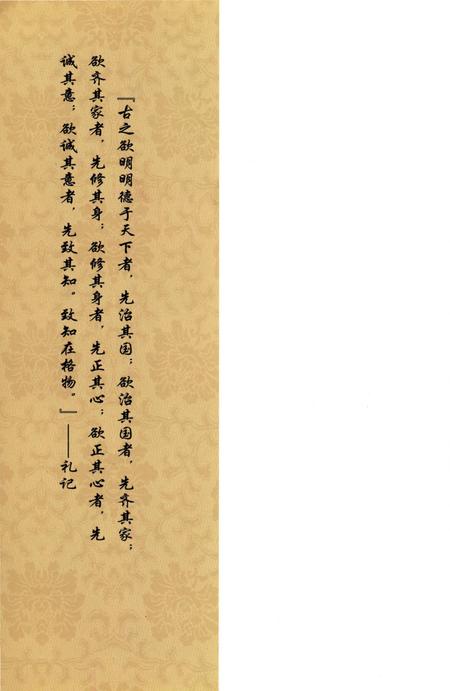 『古之欲明明德于天下者，先治其国；欲治其国者，先齐其家；
欲齐其家者，先修其身；欲修其身者，先正其心；欲正其心者，先
诚其意；欲诚其意者，先致其知。致知在格物。』——礼记